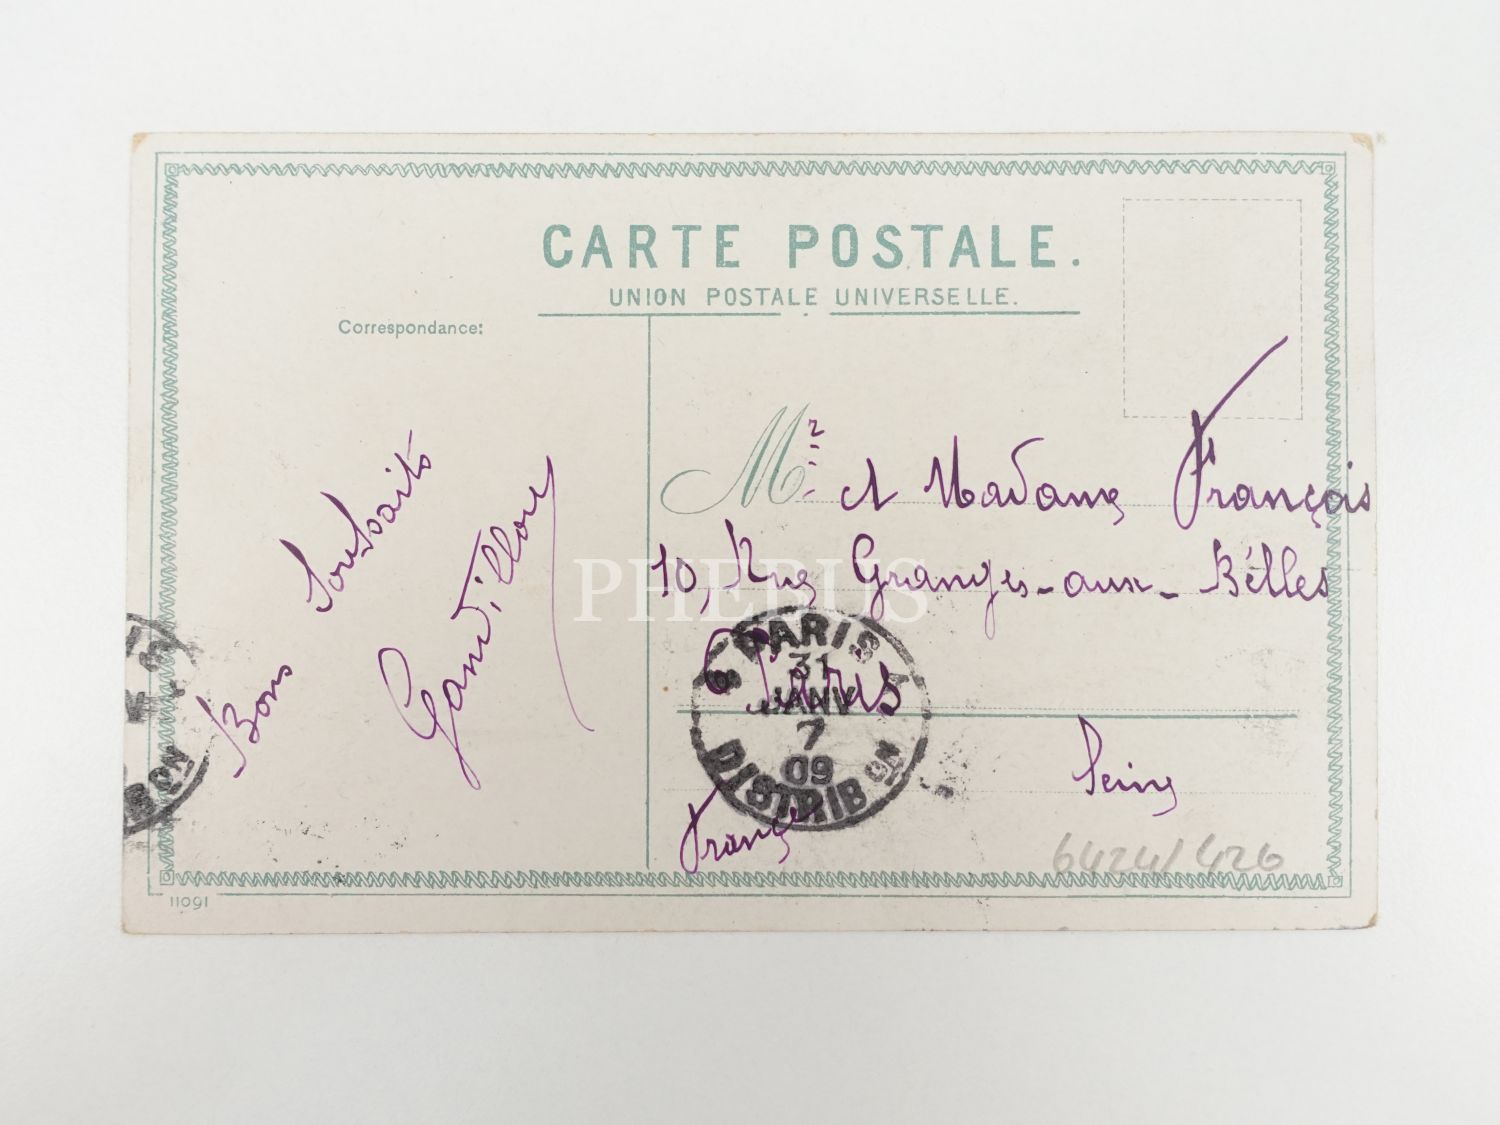 CARTE POSTALE.
UNION POSTALE UNIVERSELLE.
Correspondance:
Bons Souhaits
Gandillon
Mr. et Madame François
10, Rue Granges-aux-Bélles
Paris
Seine
France
PARIS
31
JANV
7
09
DISTRIBON
6424/426
11091
PHEBUS